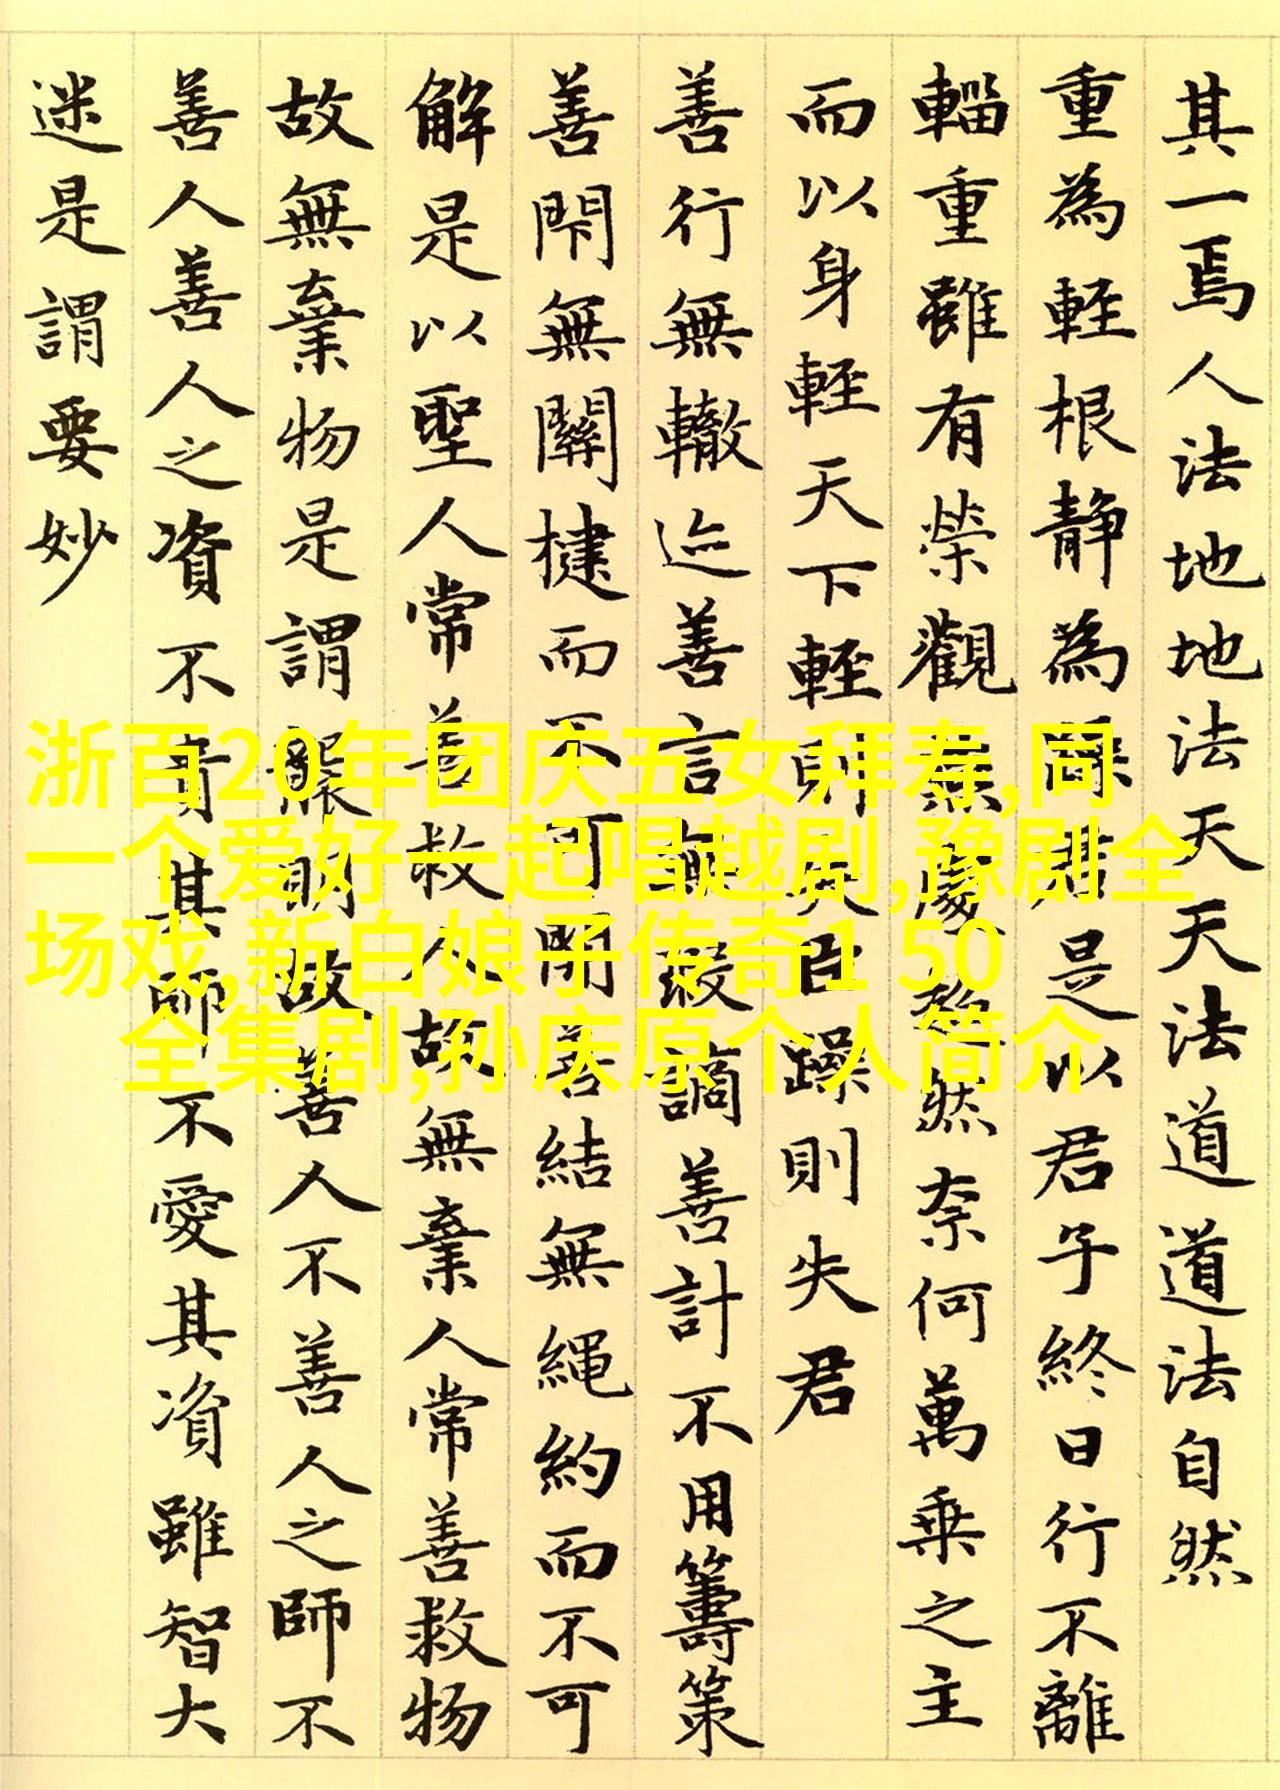 其一焉人法地地法天天法道道法自然
重為輕根靜為躁君是以君子終日行不離
輜重雖有榮觀燕處超然奈何萬乘之主
而以身輕天下輕則失臣躁則失君
善行無轍迹善言無瑕謫善計不用籌策
善閇無關楗而不可開善結無繩約而不可
解是以聖人常善救人故無棄人常善救物
故無棄物是謂襲明故善人不善人之師不
善人善人之資不貴其師不愛其資雖智大
迷是謂要妙
浙百20年团庆五女拜寿,同
一个爱好一起唱越剧,豫剧全
场戏,新白娘子传奇1 50
全集剧,孙庆原个人简介